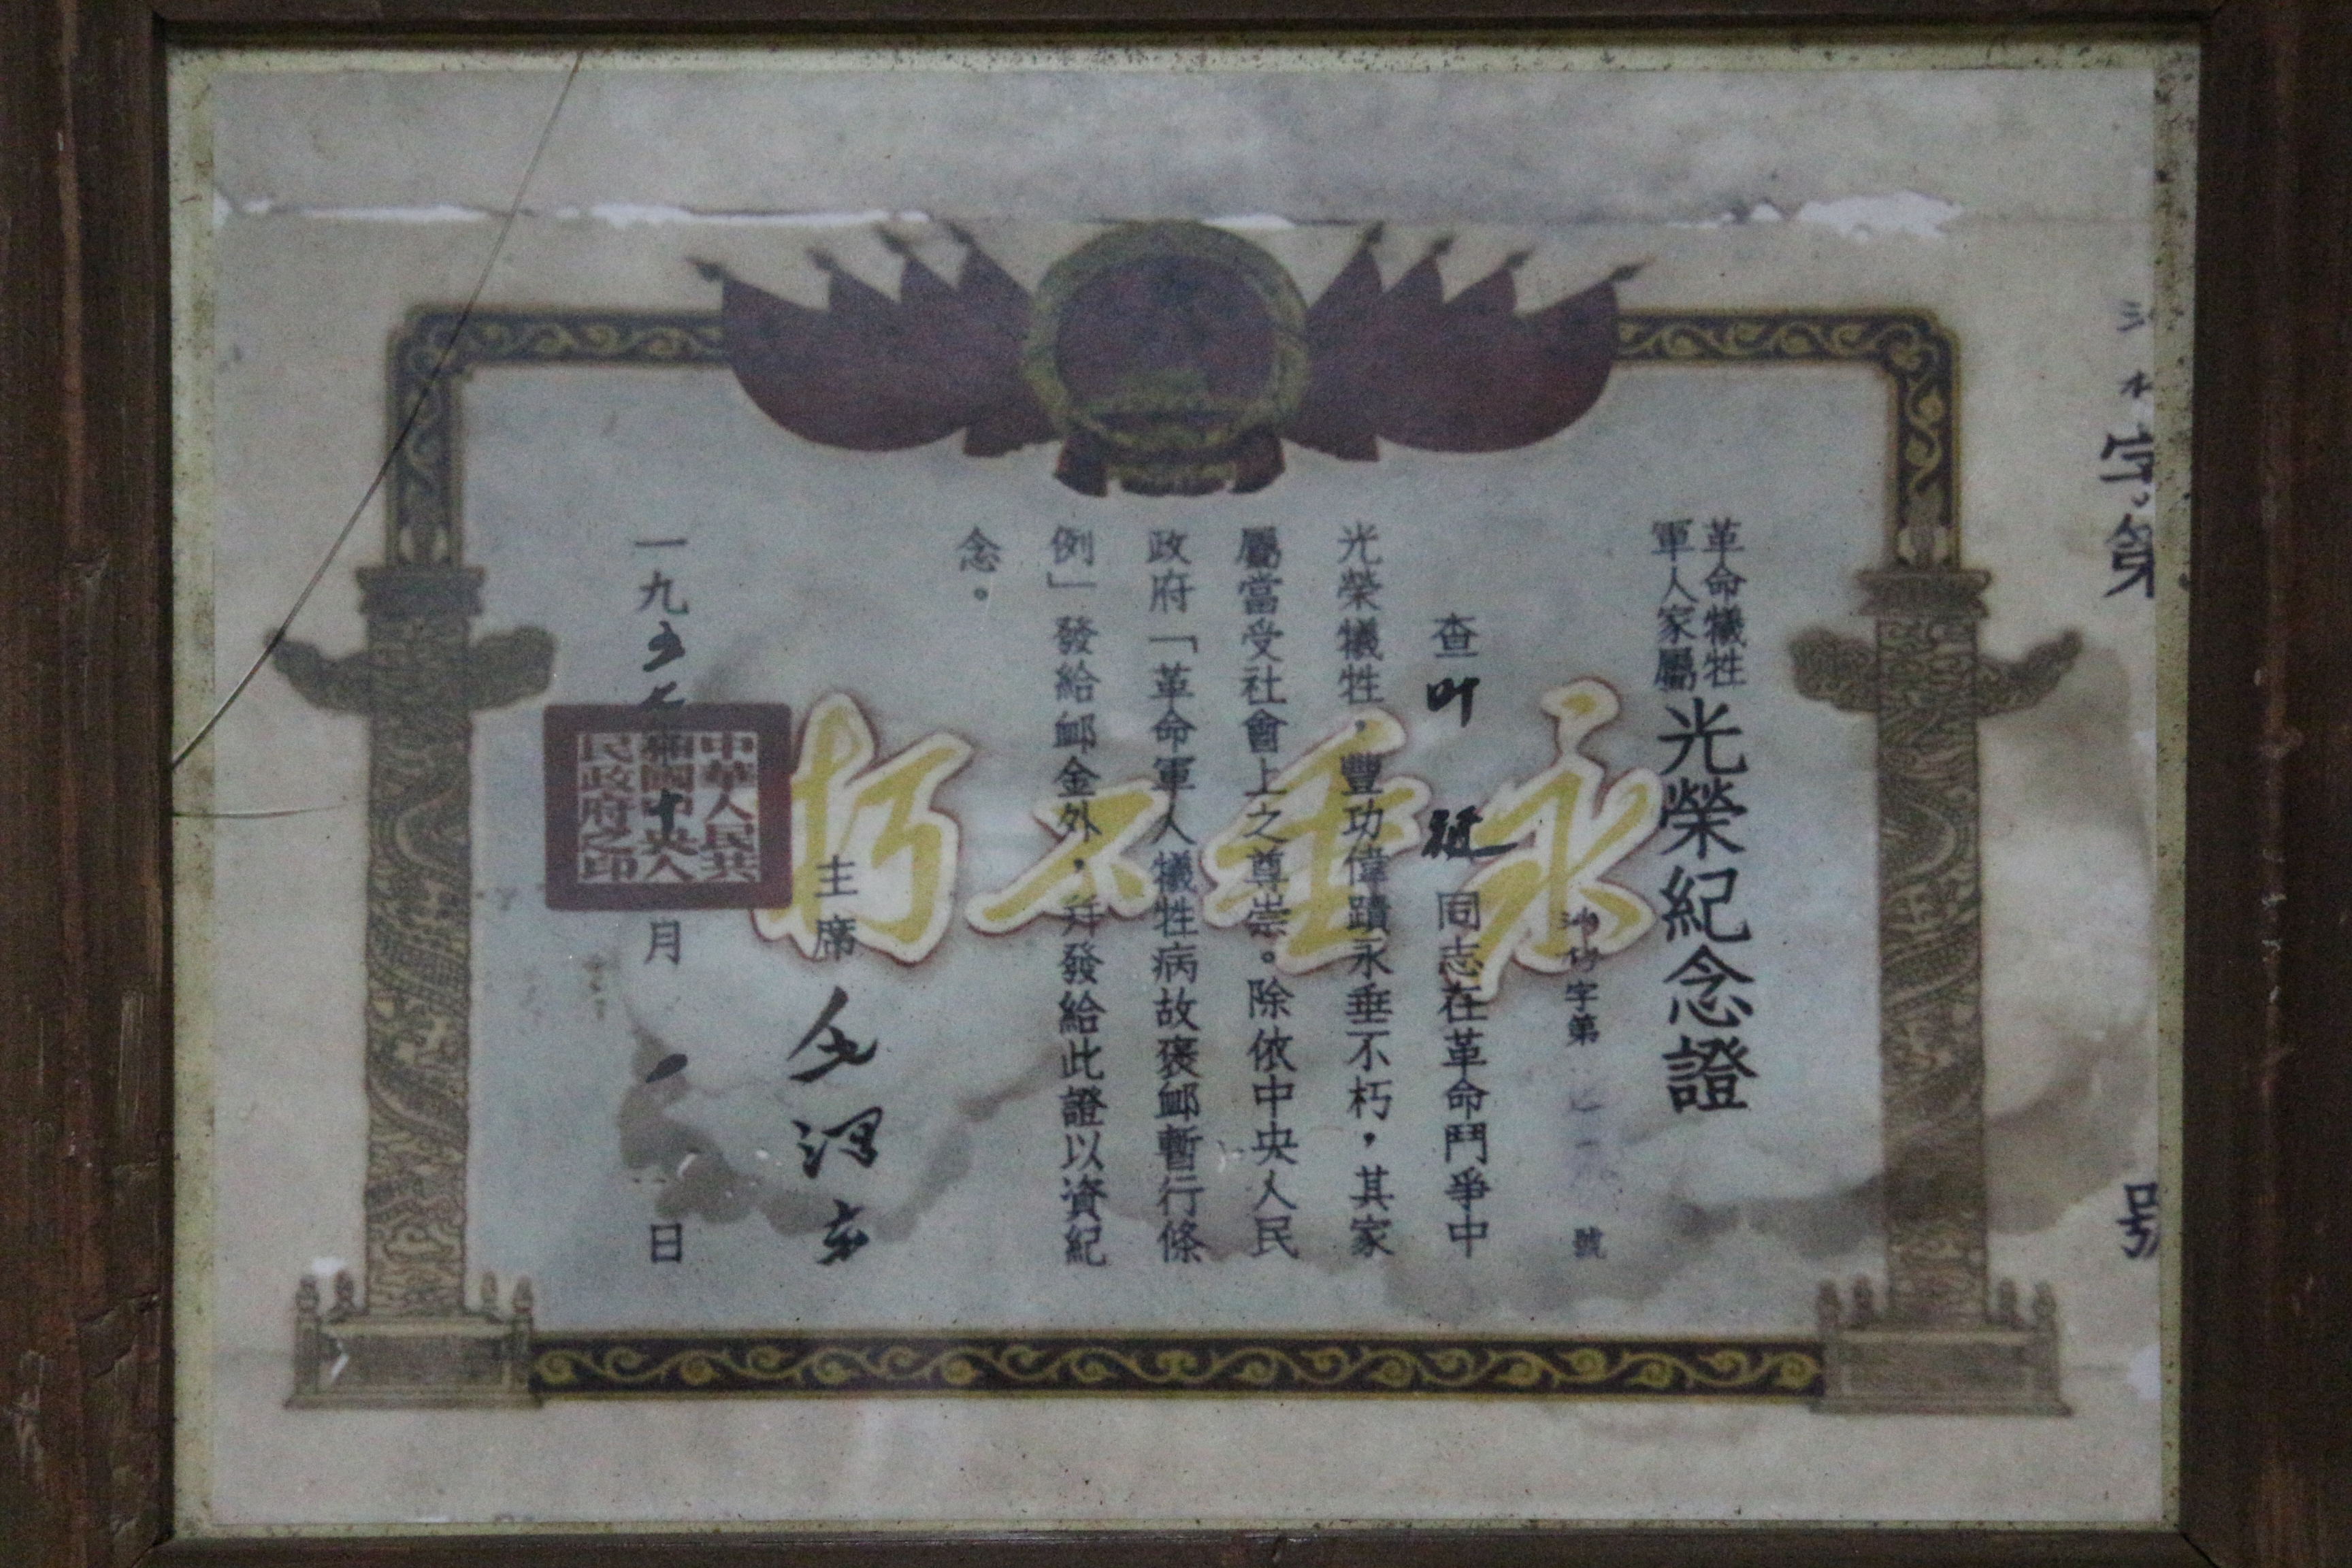 革命犧牲
軍人家屬
光榮紀念證
字第 號
查叶挺同志在革命鬥爭中
光榮犧牲，豐功偉蹟永垂不朽，其家
屬當受社會上之尊崇。除依中央人民
政府「革命軍人犧牲病故褒卹暫行條
例」發給卹金外，并發給此證以資紀
念。
主席 毛澤东
一九五 年 十月一日
永垂不朽
中華人民共
和國中央人
民政府之印
字第 号